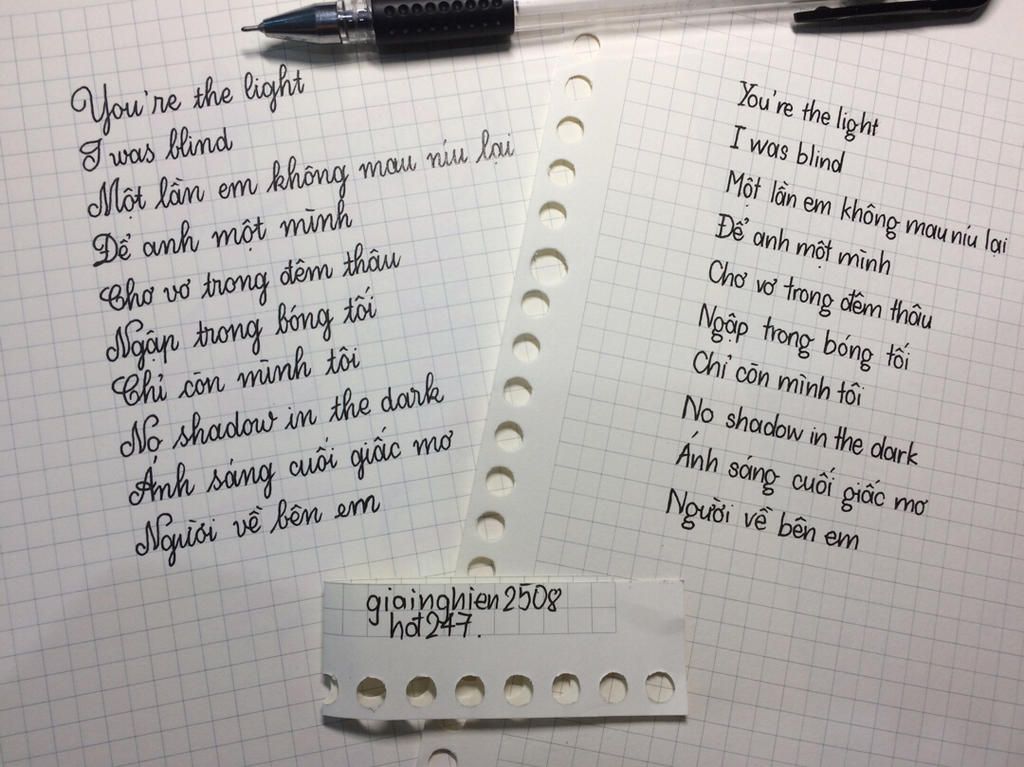 You're the light
I was blind
Một lần em không mau níu lại
Để anh một mình
Chơ vơ trong đêm thâu
Ngập trong bóng tối
Chỉ còn mình tôi
No shadow in the dark
Ánh sáng cuối giấc mơ
Người về bên em
You're the light
I was blind
Một lần em không mau níu lại
Để anh một mình
Chơ vơ trong đêm thâu
Ngập trong bóng tối
Chỉ còn mình tôi
No shadow in the dark
Ánh sáng cuối giấc mơ
Người về bên em
giainghien2508
hot247.